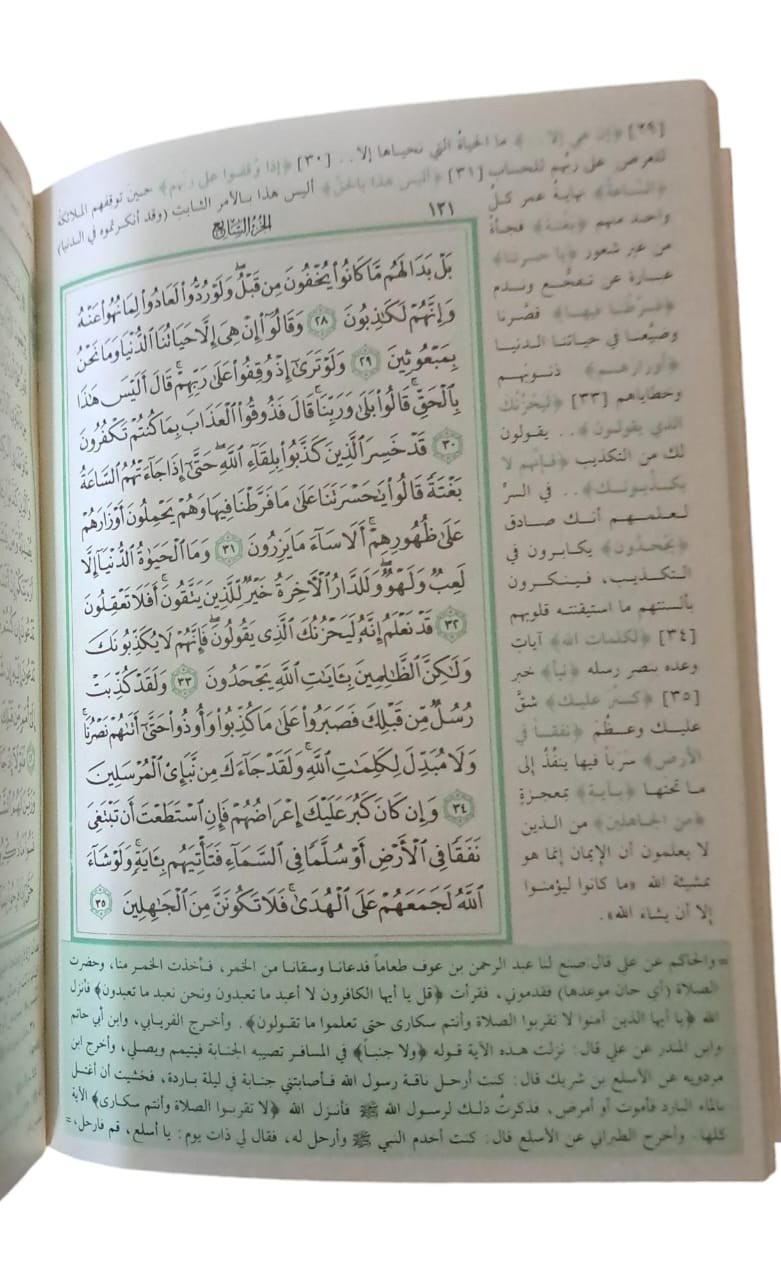 [٢٩] ﴿إن هي إلا..﴾ ما الحياةُ التي نحياها إلا.. [٣٠] ﴿إذا وُقفوا على ربهم﴾ حين توقفهم الملائكة
للعرض على ربهم للحساب [٣١] ﴿أليس هذا بالحق﴾ أليس هذا بالأمر الثابت (وقد أنكرتموه في الدنيا)
١٢١
الجزء السابع
بَلْ بَدَا لَهُم مَّا كَانُوا۟ يُخْفُونَ مِن قَبْلُ ۖ وَلَوْ رُدُّوا۟ لَعَادُوا۟ لِمَا نُهُوا۟ عَنْهُ
وَإِنَّهُمْ لَكَٰذِبُونَ ٢٨ وَقَالُوٓا۟ إِنْ هِىَ إِلَّا حَيَاتُنَا ٱلدُّنْيَا وَمَا نَحْنُ
بِمَبْعُوثِينَ ٢٩ وَلَوْ تَرَىٰٓ إِذْ وُقِفُوا۟ عَلَىٰ رَبِّهِمْ ۚ قَالَ أَلَيْسَ هَٰذَا
بِٱلْحَقِّ ۚ قَالُوا۟ بَلَىٰ وَرَبِّنَا ۚ قَالَ فَذُوقُوا۟ ٱلْعَذَابَ بِمَا كُنتُمْ تَكْفُرُونَ
٣٠ قَدْ خَسِرَ ٱلَّذِينَ كَذَّبُوا۟ بِلِقَآءِ ٱللَّهِ ۖ حَتَّىٰٓ إِذَا جَآءَتْهُمُ ٱلسَّاعَةُ
بَغْتَةً قَالُوا۟ يَٰحَسْرَتَنَا عَلَىٰ مَا فَرَّطْنَا فِيهَا وَهُمْ يَحْمِلُونَ أَوْزَارَهُمْ
عَلَىٰ ظُهُورِهِمْ ۚ أَلَا سَآءَ مَا يَزِرُونَ ٣١ وَمَا ٱلْحَيَوٰةُ ٱلدُّنْيَآ إِلَّا
لَعِبٌ وَلَهْوٌ ۖ وَلَلدَّارُ ٱلْـَٔاخِرَةُ خَيْرٌ لِّلَّذِينَ يَتَّقُونَ ۗ أَفَلَا تَعْقِلُونَ
٣٢ قَدْ نَعْلَمُ إِنَّهُۥ لَيَحْزُنُكَ ٱلَّذِى يَقُولُونَ ۖ فَإِنَّهُمْ لَا يُكَذِّبُونَكَ
وَلَٰكِنَّ ٱلظَّٰلِمِينَ بِـَٔايَٰتِ ٱللَّهِ يَجْحَدُونَ ٣٣ وَلَقَدْ كُذِّبَتْ
رُسُلٌ مِّن قَبْلِكَ فَصَبَرُوا۟ عَلَىٰ مَا كُذِّبُوا۟ وَأُوذُوا۟ حَتَّىٰٓ أَتَىٰهُمْ نَصْرُنَا ۚ
وَلَا مُبَدِّلَ لِكَلِمَٰتِ ٱللَّهِ ۚ وَلَقَدْ جَآءَكَ مِن نَّبَإِى۟ ٱلْمُرْسَلِينَ
٣٤ وَإِن كَانَ كَبُرَ عَلَيْكَ إِعْرَاضُهُمْ فَإِنِ ٱسْتَطَعْتَ أَن تَبْتَغِىَ
نَفَقًا فِى ٱلْأَرْضِ أَوْ سُلَّمًا فِى ٱلسَّمَآءِ فَتَأْتِيَهُم بِـَٔايَةٍ ۚ وَلَوْ شَآءَ
ٱللَّهُ لَجَمَعَهُمْ عَلَى ٱلْهُدَىٰ ۚ فَلَا تَكُونَنَّ مِنَ ٱلْجَٰهِلِينَ ٣٥
﴿الساعة﴾ نهاية عمر كلّ
واحد منهم ﴿بغتة﴾ فجأةً
من غير شعور ﴿يا حسرتنا﴾
عبارة عن تفجُّع وندم
﴿فرّطنا فيها﴾ قصّرنا
وضيّعنا في حياتنا الدنيا
﴿أوزارهم﴾ ذنوبهم
وخطاياهم [٣٣] ﴿ليحزنك
الذي يقولون﴾.. يقولون
لك من التكذيب ﴿فإنهم لا
يكذبونك﴾.. في السرّ
لعلمهم أنك صادق
﴿يجحدون﴾ يكابرون في
التكذيب، فينكرون
بألسنتهم ما استيقنته قلوبهم
[٣٤] ﴿لكلمات الله﴾ آيات
وعده بنصر رسله ﴿نبأ﴾ خبر
[٣٥] ﴿كبُر عليك﴾ شقَّ
عليك وعظُمَ ﴿نفقاً في
الأرض﴾ سرَباً فيها ينفُذُ إلى
ما تحتها ﴿بآية﴾ بمعجزةٍ
﴿من الجاهلين﴾ من الذين
لا يعلمون أن الإيمان إنما هو
بمشيئة الله «ما كانوا ليؤمنوا
إلا أن يشاءَ الله».
= والحاكم عن علي قال صنع لنا عبد الرحمن بن عوف طعاماً فدعانا وسقانا من الخمر، فأخذت الخمر منا، وحضرت
الصلاة (أي حان موعدها) فقدموني، فقرأت ﴿قل يا أيها الكافرون لا أعبد ما تعبدون ونحن نعبد ما تعبدون﴾ فأنزل
الله ﴿يا أيها الذين آمنوا لا تقربوا الصلاة وأنتم سكارى حتى تعلموا ما تقولون﴾. وأخرج الفريابي، وابن أبي حاتم
وابن المنذر عن علي قال: نزلت هذه الآية قوله ﴿ولا جنباً﴾ في المسافر تصيبه الجنابة فيتيمم ويصلي، وأخرج ابن
مردويه عن الأسلع بن شريك قال: كنت أرحل ناقة رسول الله فأصابتني جنابة في ليلة باردة، فخشيت أن أغتسل
بالماء البارد فأموت أو أمرض، فذكرتُ ذلك لرسول الله ﷺ فأنزل الله ﴿لا تقربوا الصلاة وأنتم سكارى﴾ الآية
كلها. وأخرج الطبراني عن الأسلع قال: كنت أخدم النبي ﷺ وأرحل له، فقال لي ذات يوم: يا أسلع، قم فارحل، =